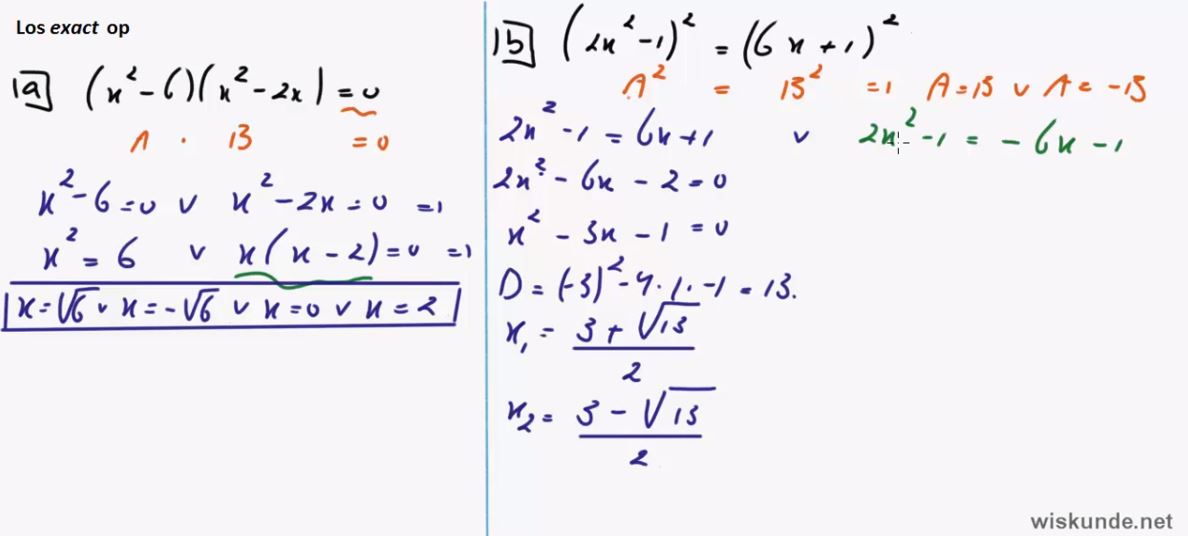 Los exact op
1a) (x² - 6)(x² - 2x) = 0
A · B = 0
x² - 6 = 0 v x² - 2x = 0 ⇒
x² = 6 v x(x - 2) = 0 ⇒
x = √6 v x = -√6 v x = 0 v x = 2
1b) (2x² - 1)² = (6x + 1)²
A² = B² ⇒ A = B v A = -B
2x² - 1 = 6x + 1 v 2x² - 1 = -6x - 1
2x² - 6x - 2 = 0
x² - 3x - 1 = 0
D = (-3)² - 4 · 1 · -1 = 13.
x₁ = (3 + √13)/2
x₂ = (3 - √13)/2
wiskunde.net